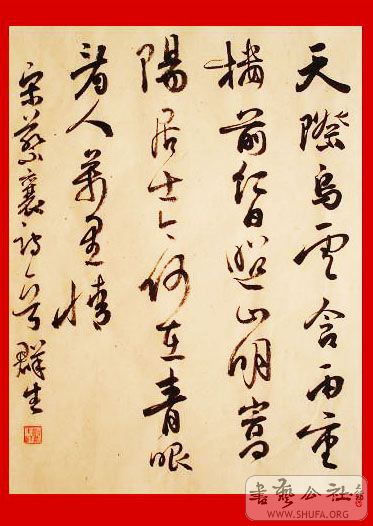 天際烏雲含雨重
樓前紅日照山明嵩
陽居士今何在青眼
看人萬里情
宋蔡襄詩一首 群生
書藝公社
WWW.SHUFA.ORG